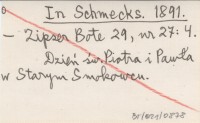 In Schmecks. 1891.
– Zipser Bote 29, nr 27: 4.
Dzień św. Piotra i Pawła
w Starym Smokowcu.